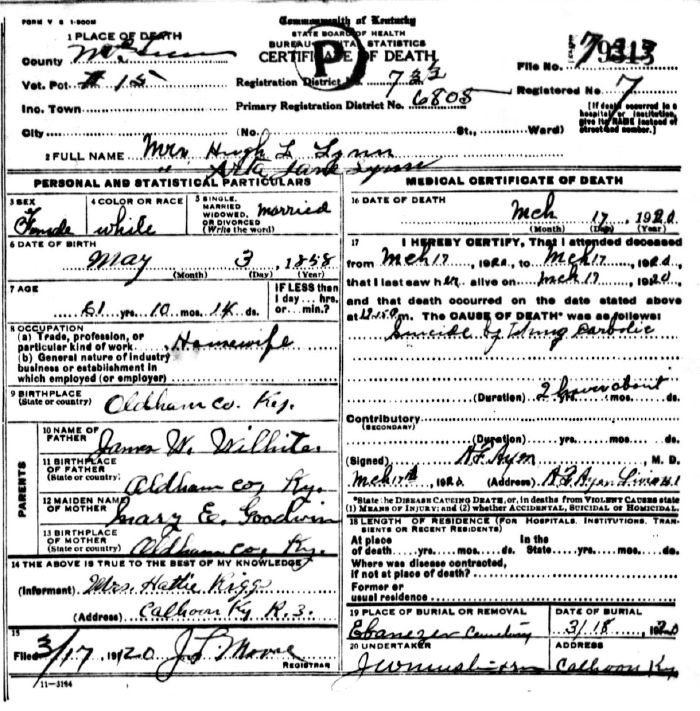 FORM V S 1-500M
Commonwealth of Kentucky
STATE BOARD OF HEALTH
BUREAU VITAL STATISTICS
CERTIFICATE OF DEATH
P
1 PLACE OF DEATH
County
Vot. Pct. # 15
Inc. Town
City (No. St., Ward)
File No.
Registration District No. 733
Registered No. 7
Primary Registration District No. 6805
[If death occurred in a hospital or institution, give its NAME instead of street and number.]
2 FULL NAME Mrs. Hugh L Lynn
" Jane Lynn
PERSONAL AND STATISTICAL PARTICULARS
3 SEX Female
4 COLOR OR RACE white
5 SINGLE, MARRIED WIDOWED, OR DIVORCED (Write the word) married
6 DATE OF BIRTH
May 3, 1858
(Month) (Day) (Year)
7 AGE
61 yrs. 10 mos. 14 ds.
IF LESS than 1 day...hrs. or...min.?
8 OCCUPATION
(a) Trade, profession, or particular kind of work Housewife
(b) General nature of industry business or establishment in which employed (or employer)
9 BIRTHPLACE
(State or country) Oldham co. Ky.
PARENTS
10 NAME OF FATHER James W. Wilhite
11 BIRTHPLACE OF FATHER
(State or country) Oldham co, Ky.
12 MAIDEN NAME OF MOTHER Mary E. Goodwin
13 BIRTHPLACE OF MOTHER
(State or country) Oldham co, Ky.
14 THE ABOVE IS TRUE TO THE BEST OF MY KNOWLEDGE
(Informant) Mrs. Hattie Riggs
(Address) Calhoon Ky R.3.
15
Filed 3/17 1920 J L Moore
REGISTRAR
11-3164
MEDICAL CERTIFICATE OF DEATH
16 DATE OF DEATH
Mch 17, 1920
(Month) (Day) (Year)
17 I HEREBY CERTIFY, That I attended deceased
from Mch 17, 1920, to Mch 17, 1920,
that I last saw her alive on Mch 17, 1920,
and that death occurred on the date stated above
at m. The CAUSE OF DEATH* was as follows:
Suicide by Carbolic
2 hours about
(Duration) yrs. mos. ds.
Contributory
(SECONDARY)
(Duration) yrs. mos. ds.
(Signed) A.F. Ayer, M. D.
Mch 17th, 1920 (Address) A F Ayer
*State the DISEASE CAUSING DEATH, or, in deaths from VIOLENT CAUSES state (1) MEANS OF INJURY; and (2) whether ACCIDENTAL, SUICIDAL OR HOMICIDAL.
18 LENGTH OF RESIDENCE (FOR HOSPITALS, INSTITUTIONS, TRANSIENTS OR RECENT RESIDENTS)
At place of death yrs. mos. ds. In the State yrs. mos. ds.
Where was disease contracted, if not at place of death?
Former or usual residence
19 PLACE OF BURIAL OR REMOVAL
Ebanezer Cemetery
DATE OF BURIAL
3/18, 1920
20 UNDERTAKER
ADDRESS
Calhoon Ky